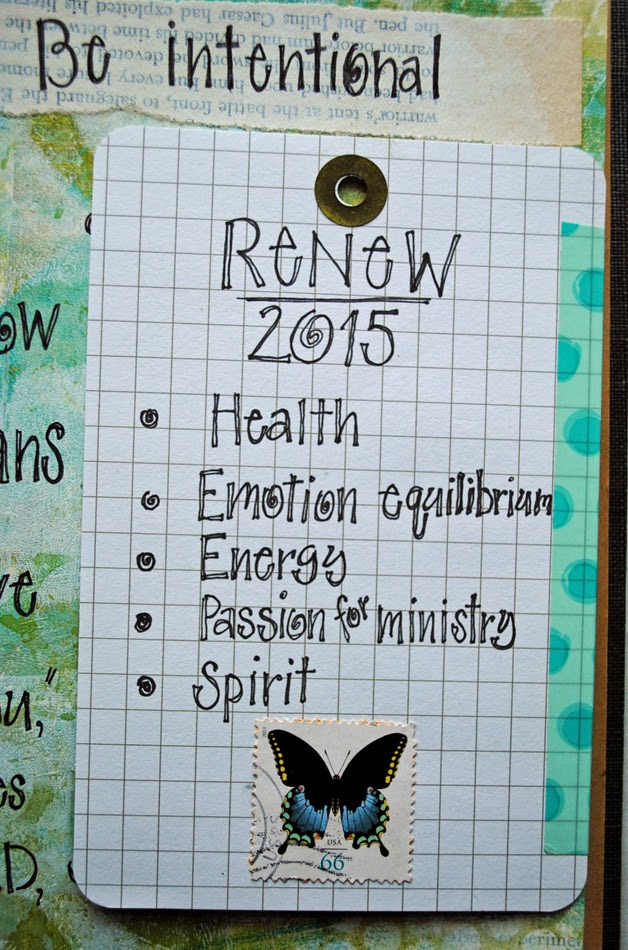 Be intentional
warrior's tent at the battle front, to safeguard the
the pen. But Julius Caesar had exploited his
ReNeW
2015
Health
Emotion equilibrium
Energy
Passion for ministry
Spirit
USA
66
ow
ans
ve
ou,"
es
D,